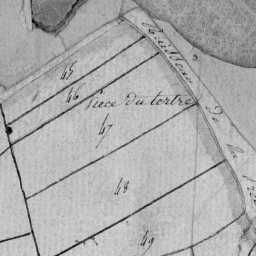 Ruisseau de la
45
46
Piece du tertre
47
48
49